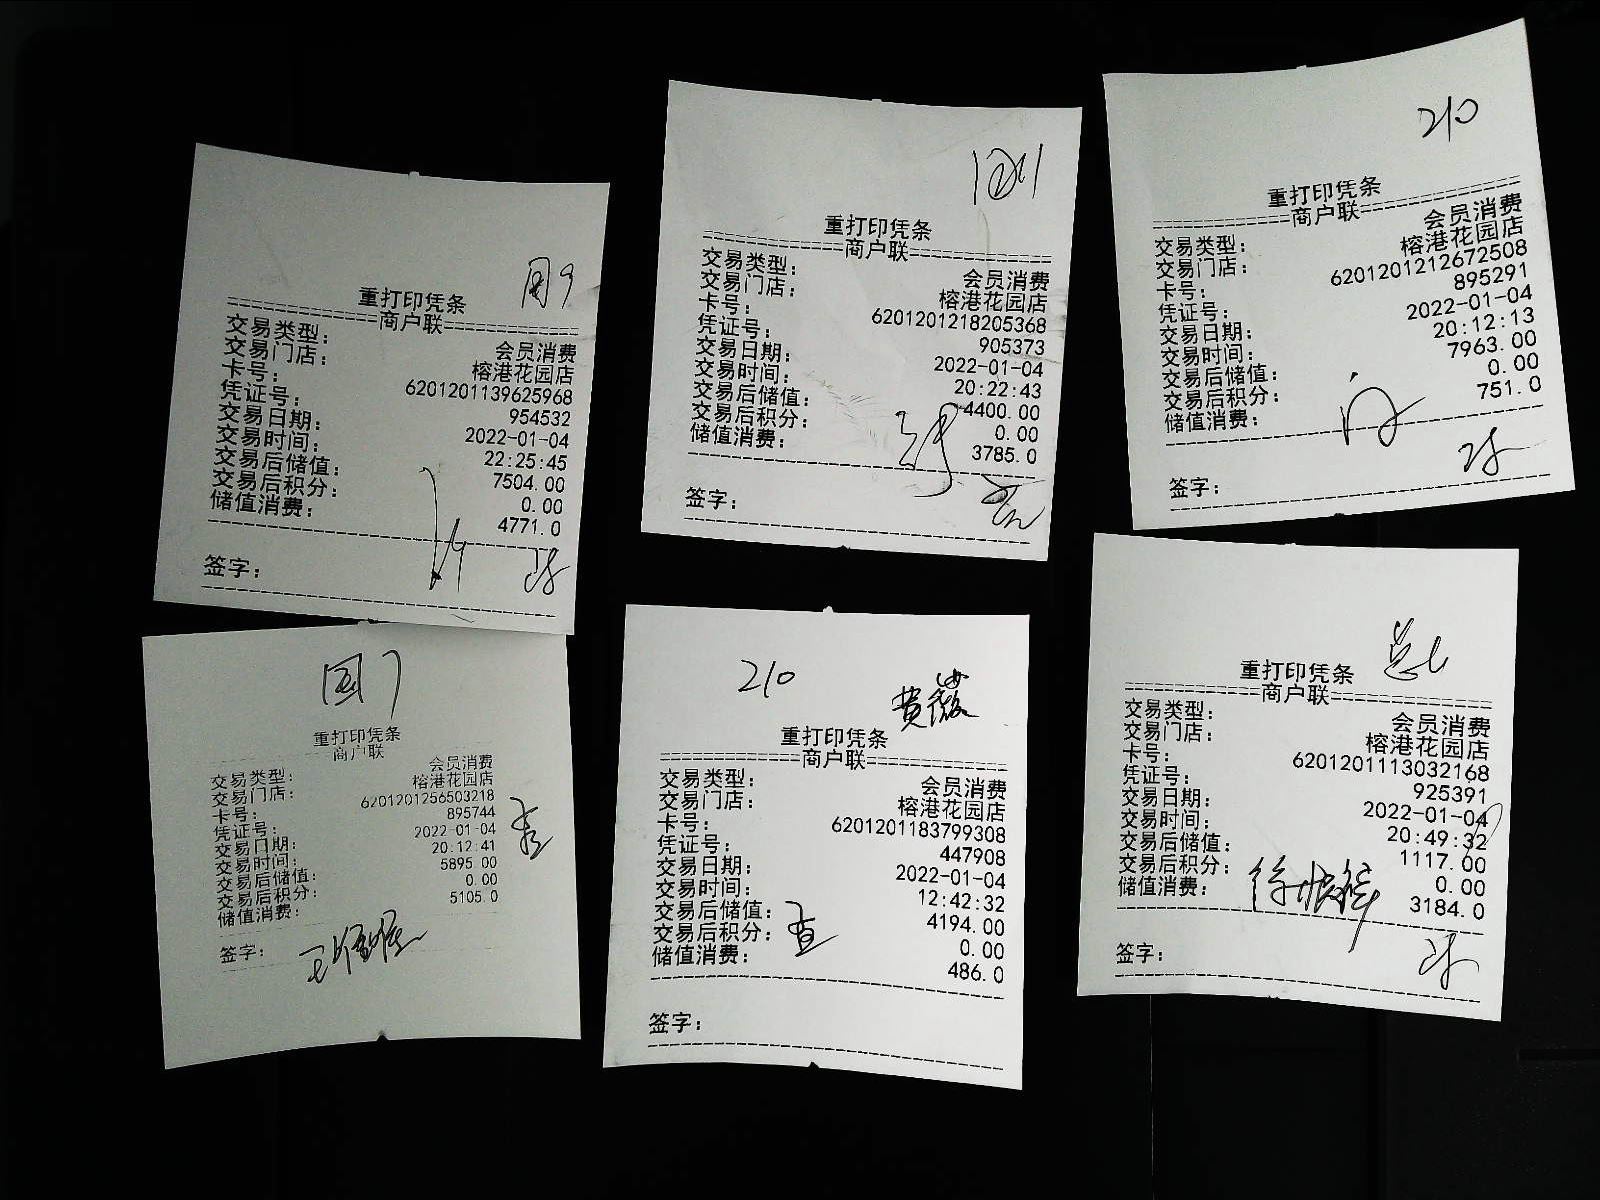 国9
重打印凭条
商户联
交易类型: 会员消费
交易门店: 榕港花园店
卡号: 6201201139625968
凭证号: 954532
交易日期: 2022-01-04
交易时间: 22:25:45
交易后储值: 7504.00
交易后积分: 0.00
储值消费: 4771.0
签字:
重打印凭条
商户联
交易类型: 会员消费
交易门店: 榕港花园店
卡号: 6201201218205368
凭证号: 905373
交易日期: 2022-01-04
交易时间: 20:22:43
交易后储值: 4400.00
交易后积分: 0.00
储值消费: 3785.0
签字:
210
重打印凭条
商户联
交易类型: 会员消费
交易门店: 榕港花园店
卡号: 6201201212672508
凭证号: 895291
交易日期: 2022-01-04
交易时间: 20:12:13
交易后储值: 7963.00
交易后积分: 0.00
储值消费: 751.0
签字:
国7
重打印凭条
商户联
交易类型: 会员消费
交易门店: 榕港花园店
卡号: 6201201256503218
凭证号: 895744
交易日期: 2022-01-04
交易时间: 20:12:41
交易后储值: 5895.00
交易后积分: 0.00
储值消费: 5105.0
签字:
210
黄薇
重打印凭条
商户联
交易类型: 会员消费
交易门店: 榕港花园店
卡号: 6201201183799308
凭证号: 447908
交易日期: 2022-01-04
交易时间: 12:42:32
交易后储值: 4194.00
交易后积分: 0.00
储值消费: 486.0
签字:
重打印凭条
商户联
交易类型: 会员消费
交易门店: 榕港花园店
卡号: 6201201113032168
凭证号: 925391
交易日期: 2022-01-04
交易时间: 20:49:32
交易后储值: 1117.00
交易后积分: 0.00
储值消费: 3184.0
签字: